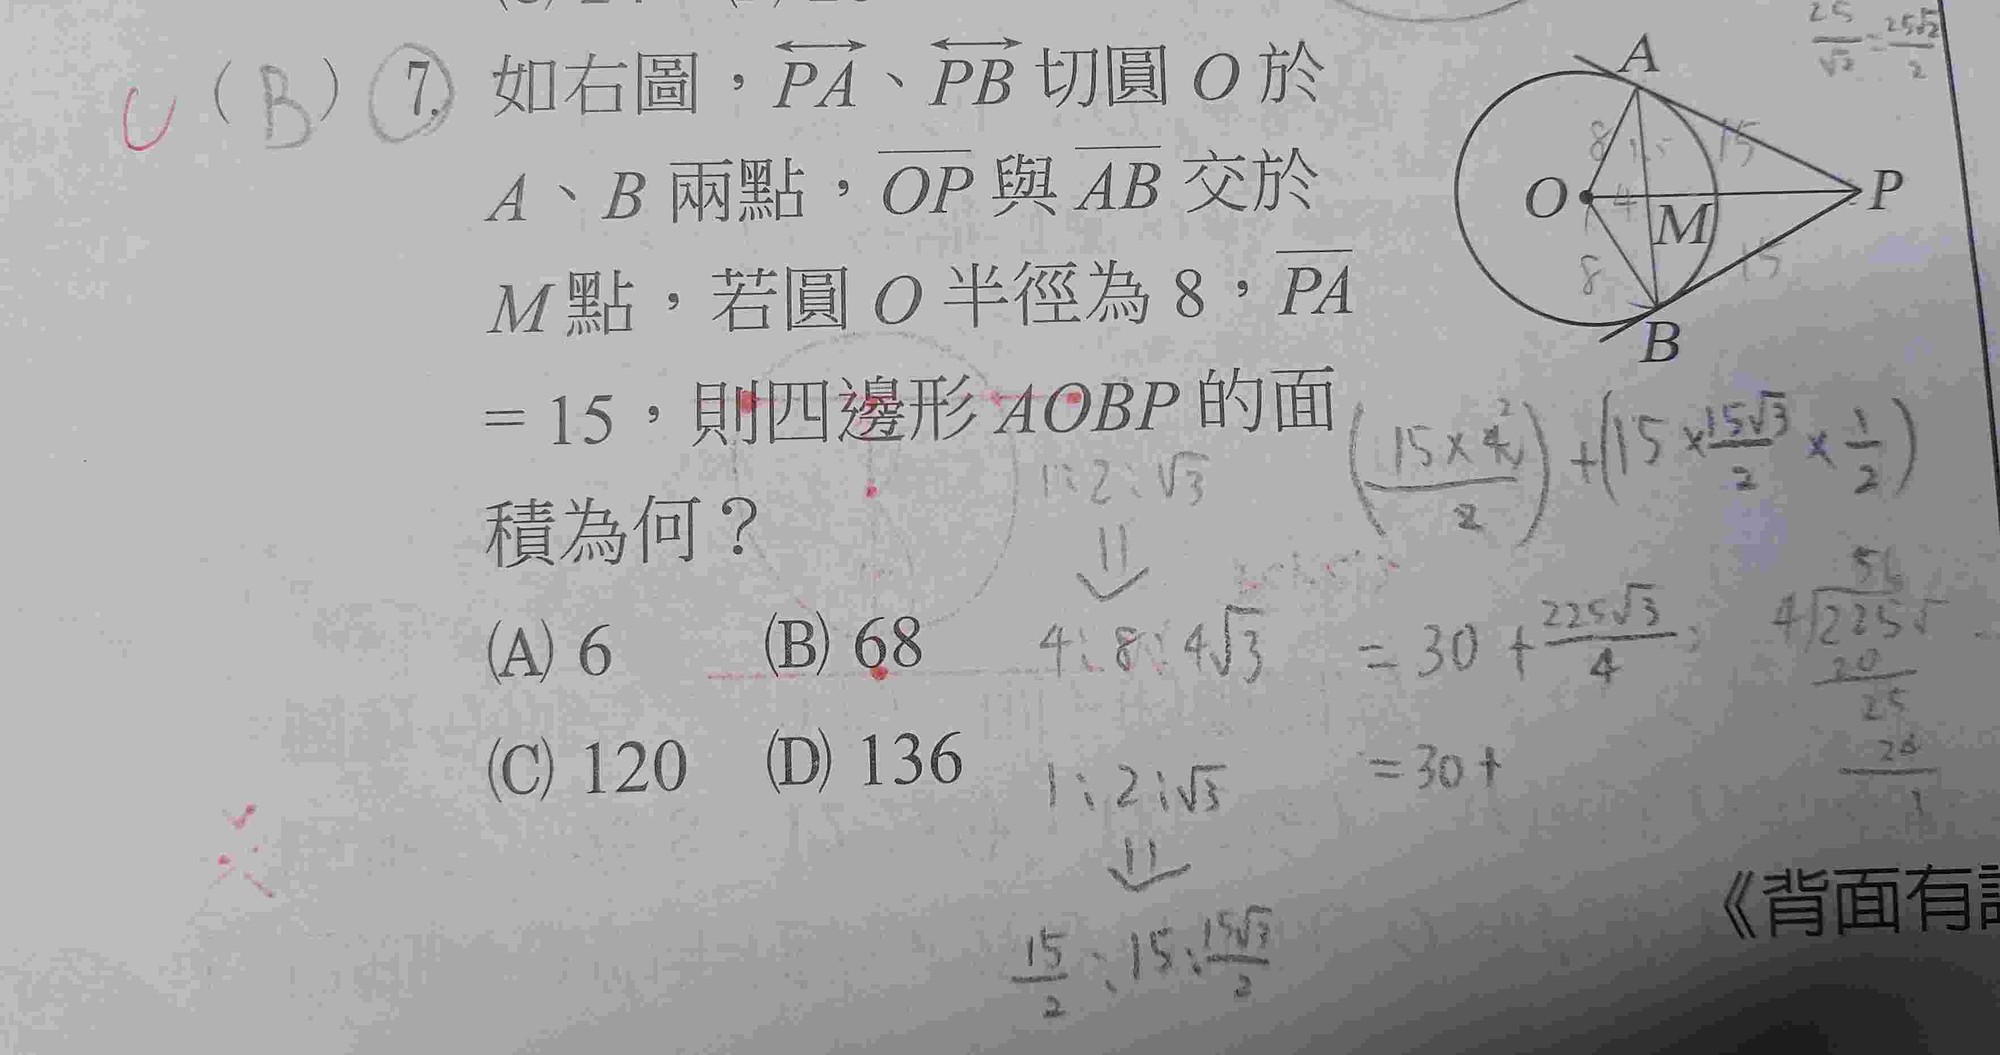 C (B) 7. 如右圖，PA、PB 切圓 O 於
A、B 兩點，OP 與 AB 交於
M 點，若圓 O 半徑為 8，PA
= 15，則四邊形 AOBP 的面
積為何？
(A) 6 (B) 68
(C) 120 (D) 136
A
O
P
M
B
8
15
4
8
15
25/√2 = 25√2/2
1:2:√3
4:8:4√3
1:2:√3
15/2:15:15√3/2
+(15×15√3/2×1/2)
=30+225√3/4
=30+
4 225
20
25
《背面有